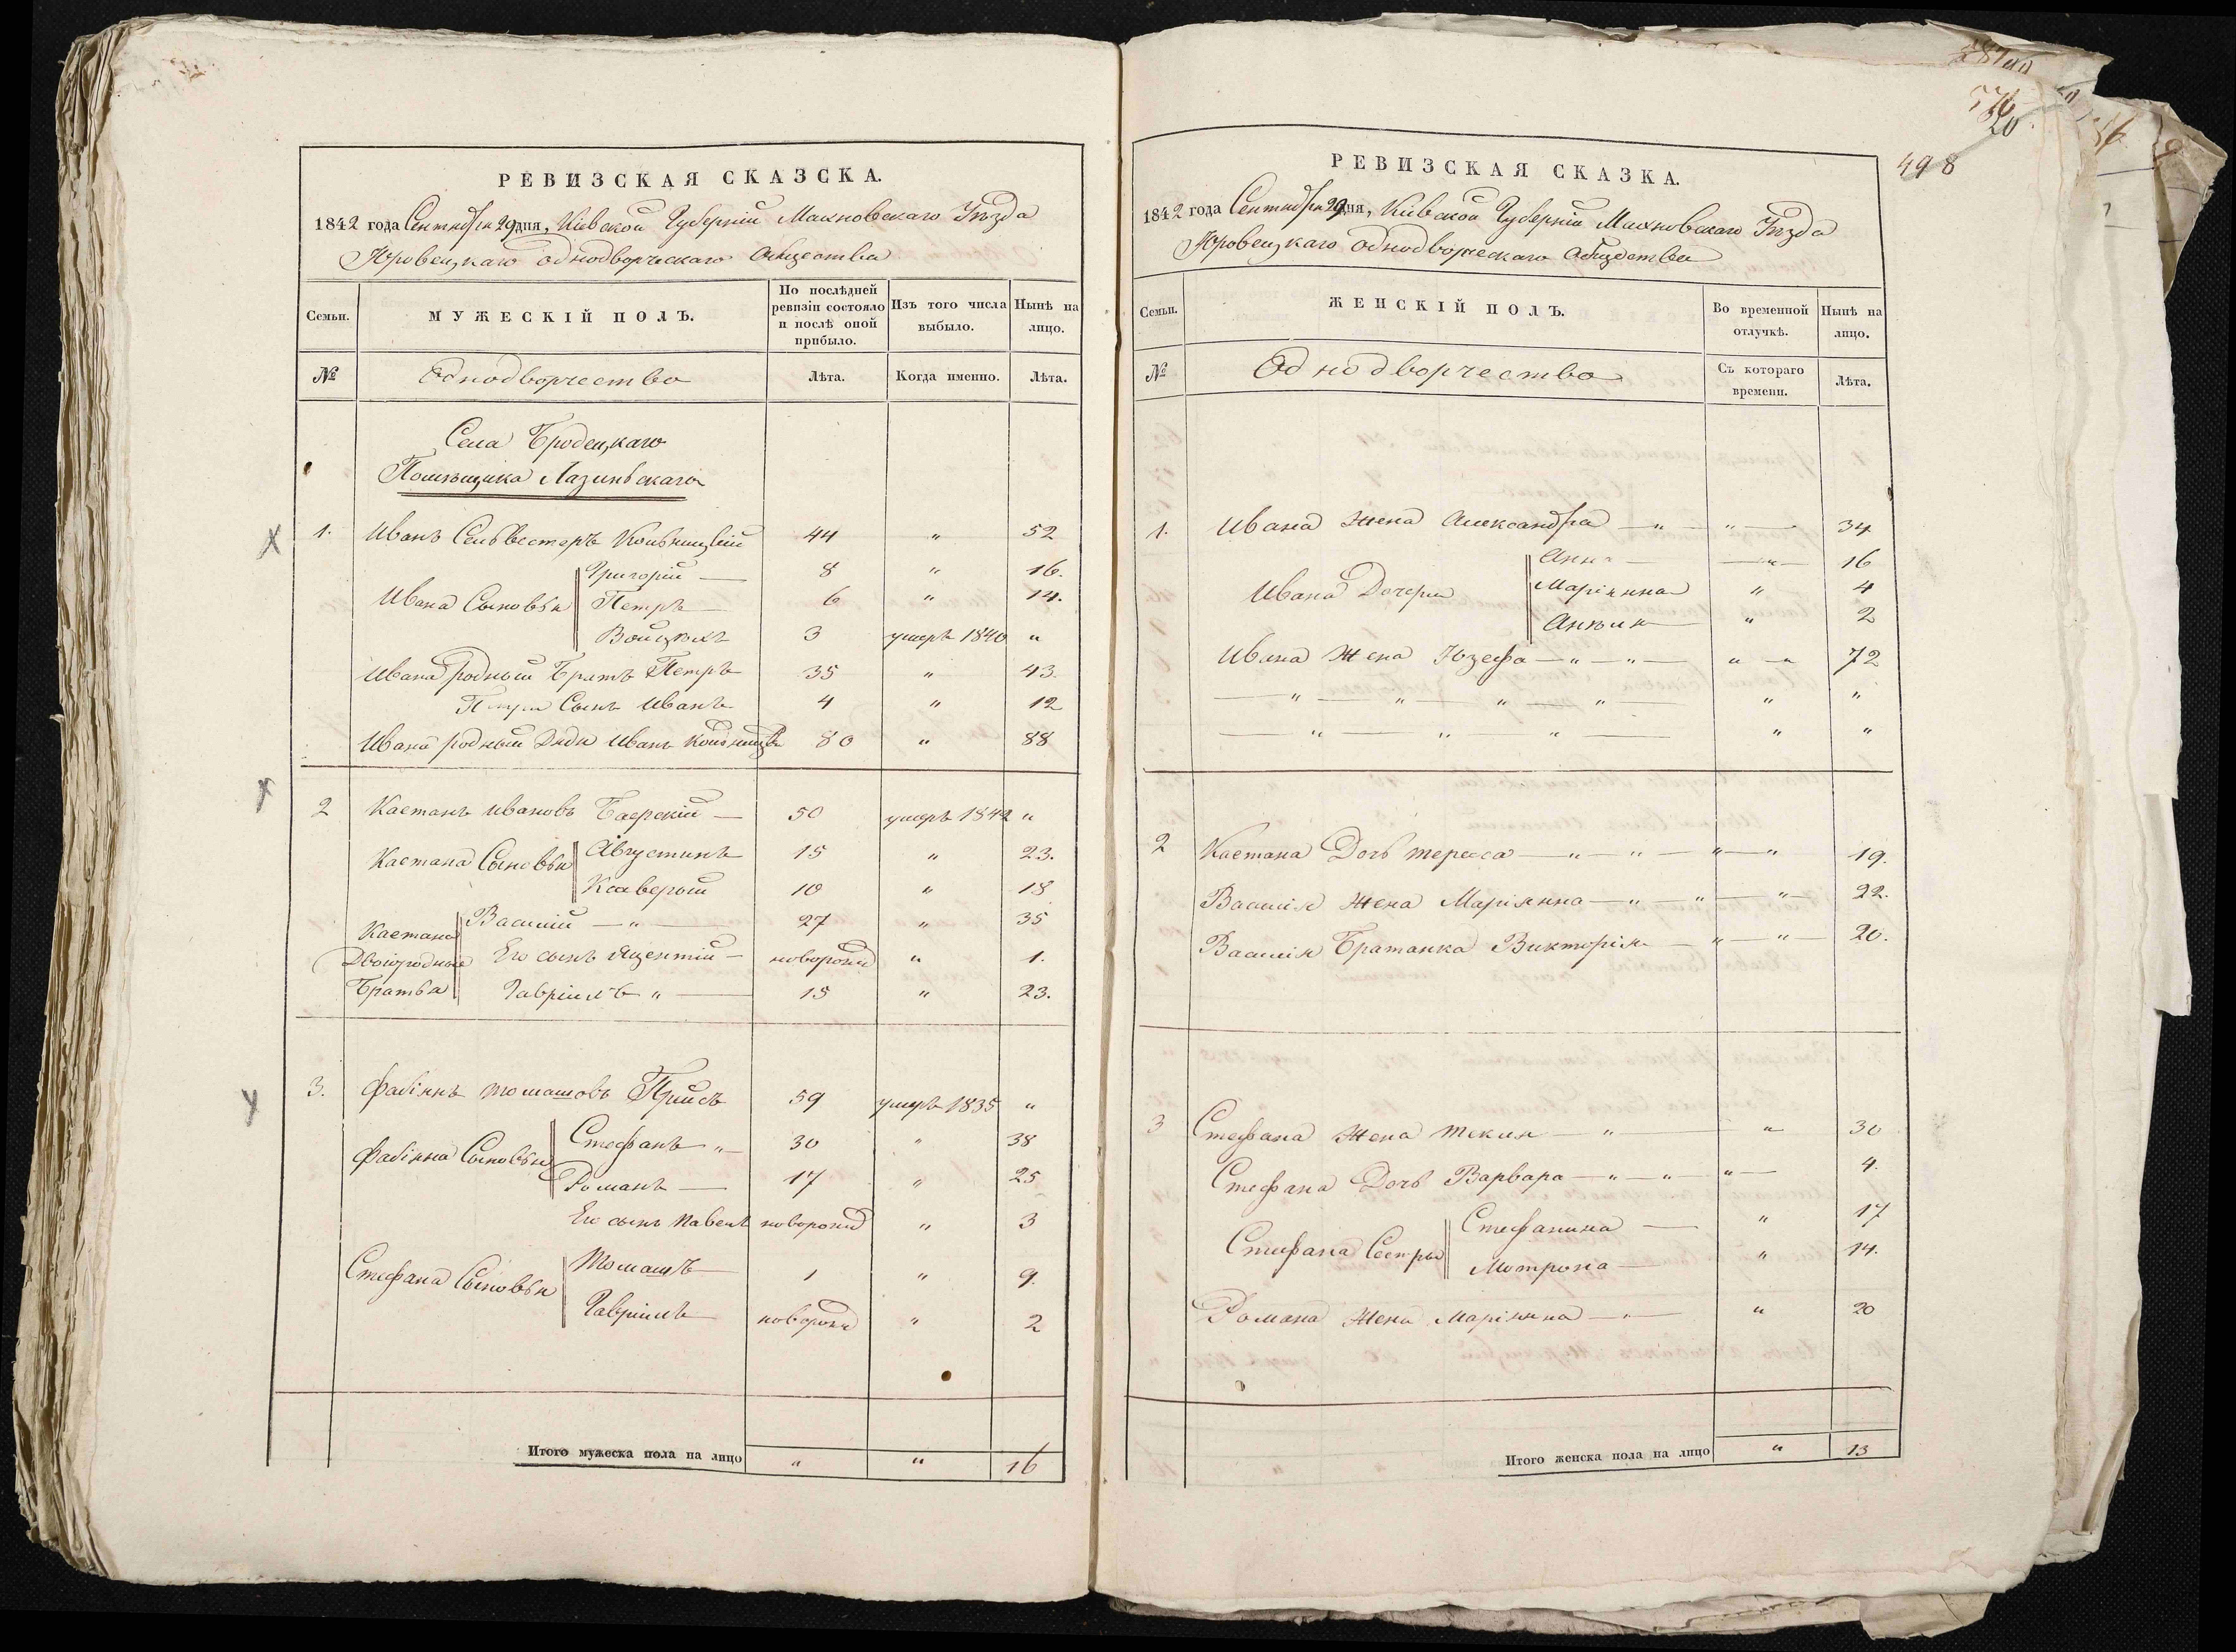 РЕВИЗСКАЯ СКАЗСКА.
1842 года Сентября 29 дня, Кіевской Губерніи Махновскаго Уѣзда
Юровецкаго однодворческаго Общества
Семьи.
МУЖЕСКІЙ ПОЛЪ.
По послѣдней ревизіи состояло и послѣ оной прибыло.
Изъ того числа выбыло.
Нынѣ на лицо.
№
Однодворчество
Лѣта.
Когда именно.
Лѣта.
Села Бродецкаго
Помѣщика
1. Иванъ Сельвестеръ 44 " 52
Григорій — 8 " 16.
Ивана Сыновья Петръ 6 " 14.
Войцѣхъ 3 умеръ 1840 "
Ивана родный Братъ Петръ 35 " 43.
Петра Сынъ Иванъ 4 " 12
Ивана родный Дядя Иванъ 80 " 88
2 Каетанъ Ивановъ Баерскій — 50 умеръ 1842 "
Каетана Сыновья Августинъ 15 " 23.
Ксаверый 10 " 18
Каетана Василій — " — 27 " 35
Двоюродные Его сынъ Яцентій — новорожд " 1.
Братья Гавріилъ " — 15 " 23.
3. Фабіянъ Томашовъ 59 умеръ 1835 "
Фабіяна Сыновья Стефанъ " — 30 " 38
Романъ — 17 " 25
Его сынъ Павелъ новорожд " 3
Стефана Сыновья Томашъ 1 " 9.
Гавріилъ новорожд " 2
Итого мужеска пола на лицо " " 16
498
РЕВИЗСКАЯ СКАЗКА.
1842 года Сентября 29 дня, Кіевской Губерніи Махновскаго Уѣзда
Юровецкаго однодворческаго Общества
Семьи.
ЖЕНСКІЙ ПОЛЪ.
Во временной отлучкѣ.
Нынѣ на лицо.
№
Однодворчество
Съ котораго времени.
Лѣта.
1. Ивана Жена Александра — " — " — 34
Анна — " — 16
Ивана Дочери Маріянна " 4
" 2
Ивана Жена Юзефа — " — " — " — " 72
— " — " — " — " — " "
— " — " — " — " "
2 Каетана Дочь Тереса — " — " — " — " 19.
Василія Жена Маріянна — " — " — " — 22.
Василія Братанка Викторія — " — " — 20.
3 Стефана Жена Текля — " — " 30
Стефана Дочь Варвара — " — " — " — 4.
Стефана Сестры Стефанина — " 17
Мотрона — " 14.
Романа Жена Маріянна — " — " 20
Итого женска пола на лицо " 13